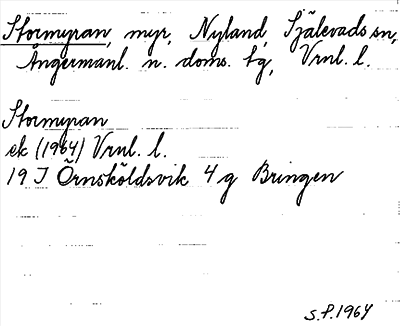 Stormyran, myr, Nyland, Själevads sn,
Ångermanl. n. doms. tg, Vrnl. l.
Stormyran
ek (1964) Vrnl. l.
19 J Örnsköldsvik 4 g Bringen
S.P. 1964